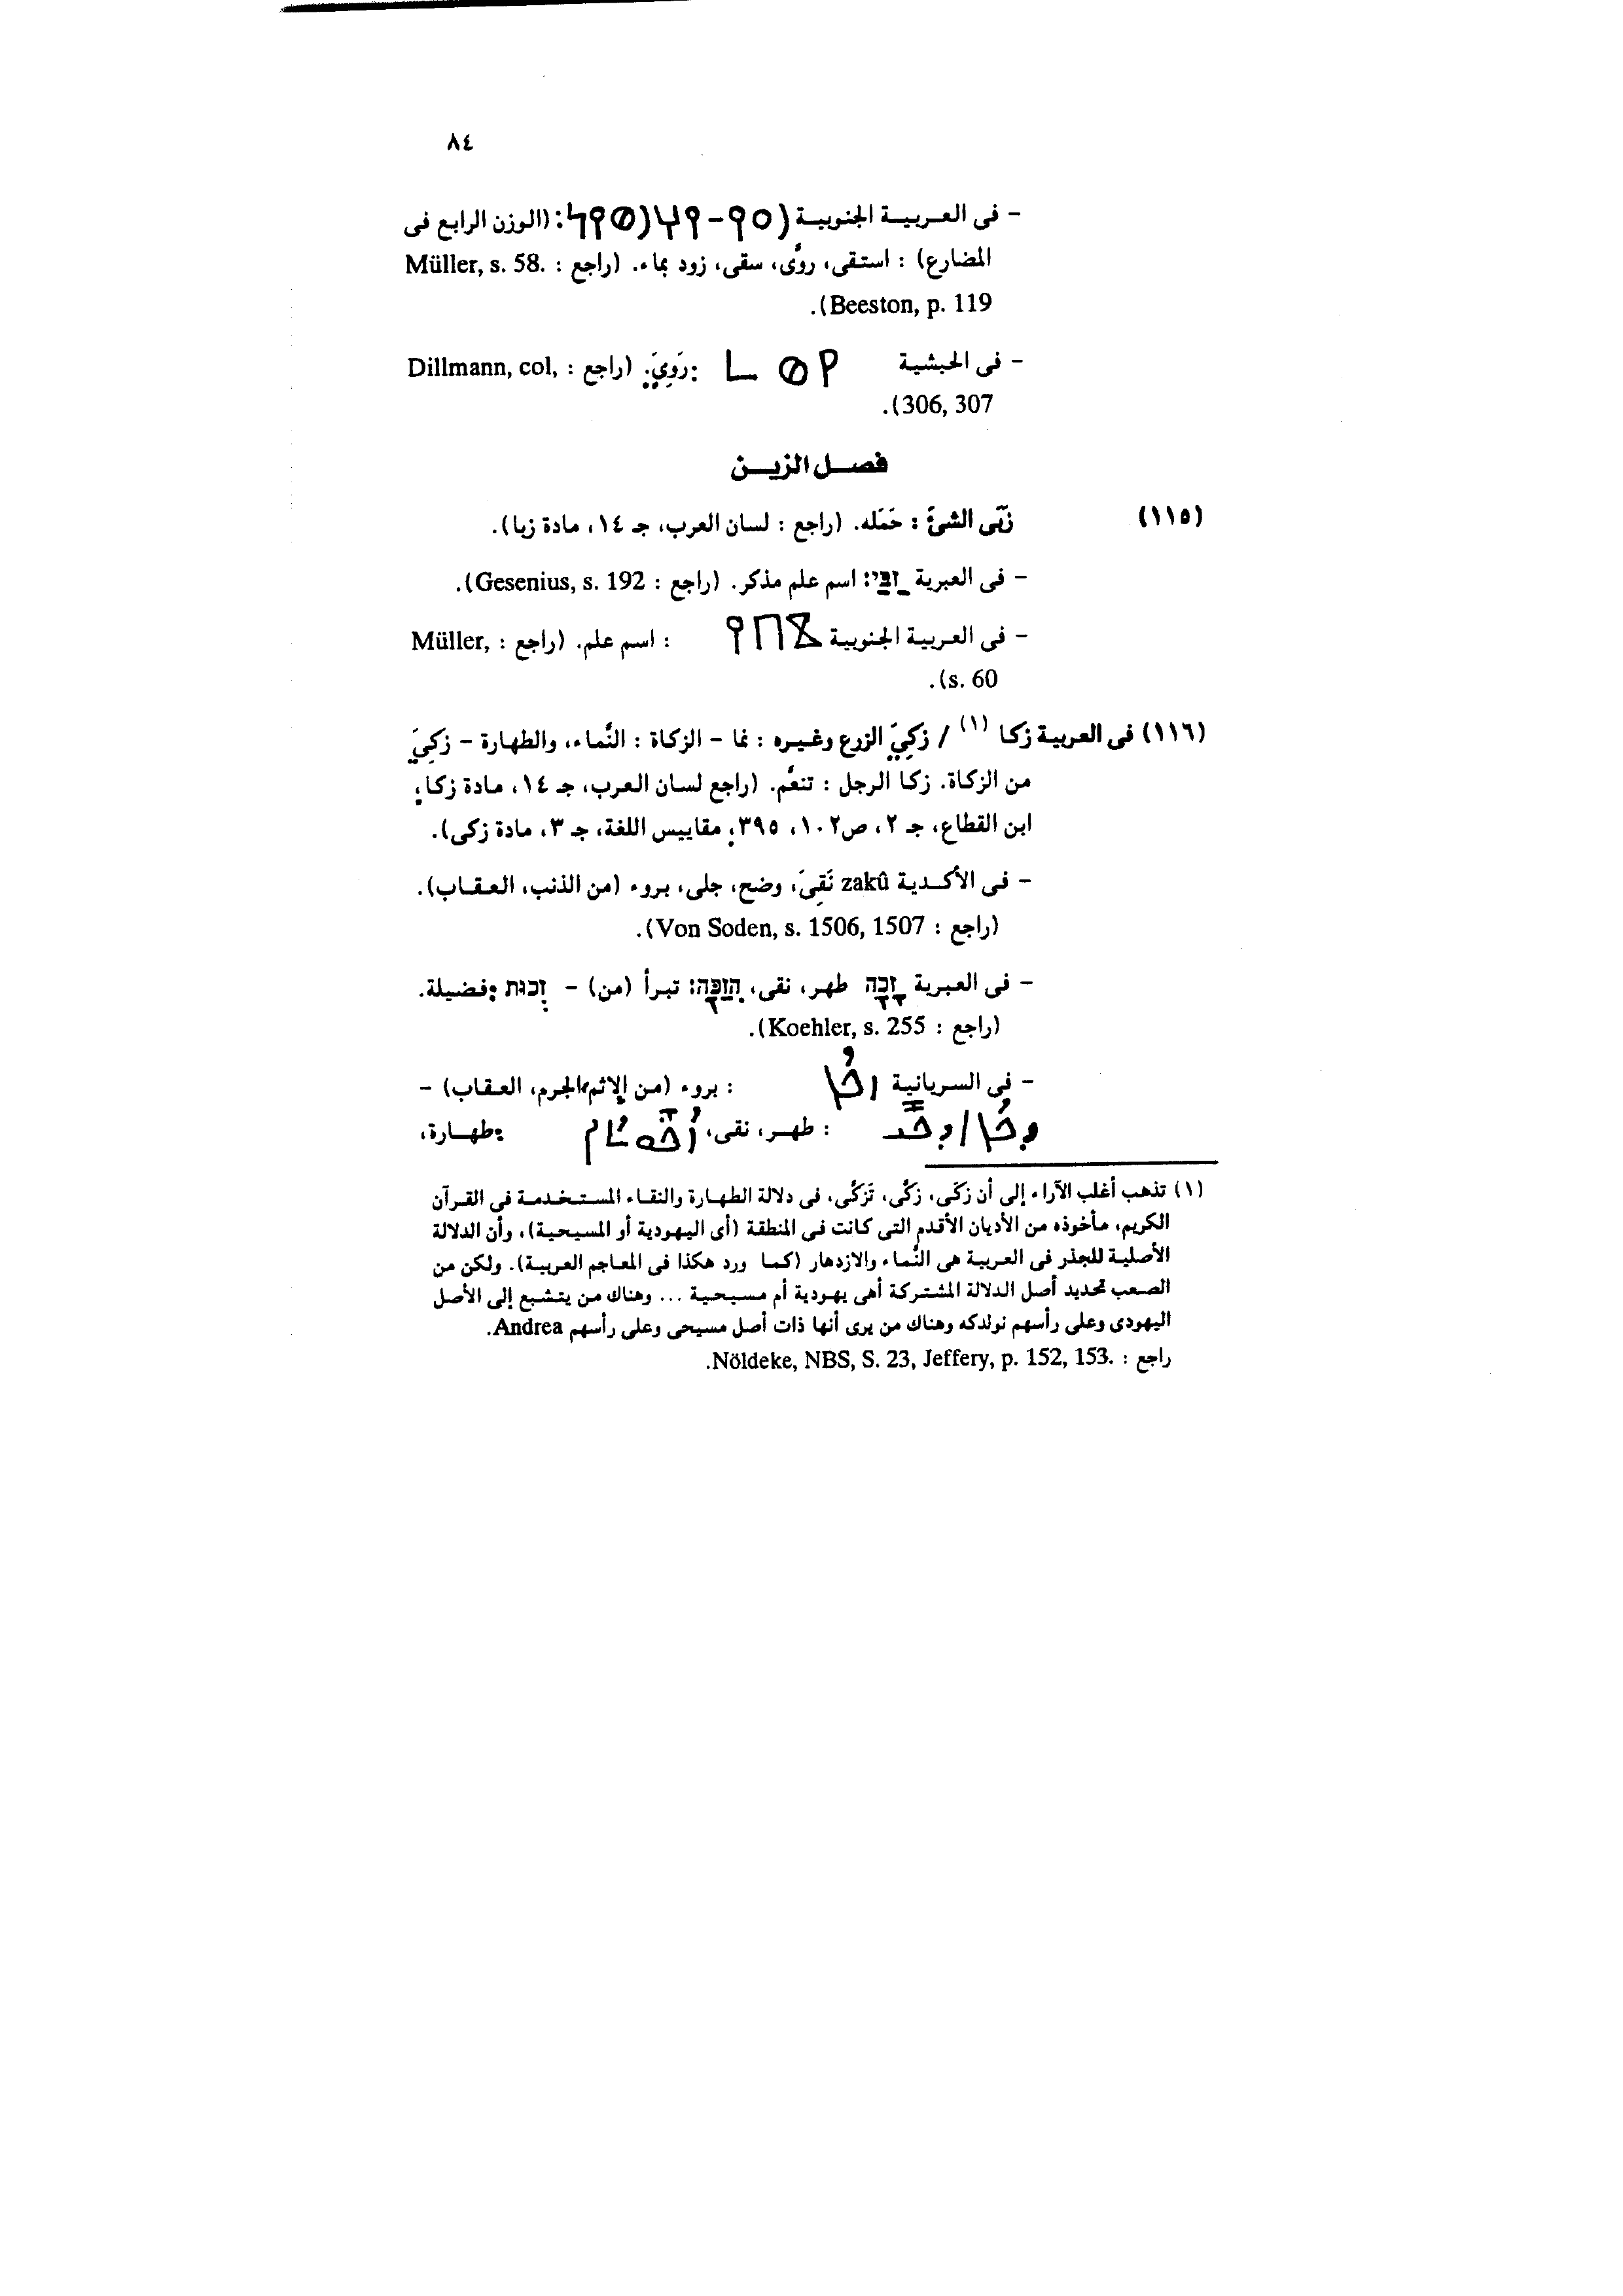 ٨٤
- فى العربية الجنوبية : (الوزن الرابع فى
المضارع) : استقى، روَّى، سقى، زود بماء. (راجع : Müller, s. 58.
Beeston, p. 119).
- فى الحبشية :رَوِيَ. (راجع : Dillmann, col,
306, 307).
فصل الزين
(١١٥) زَبَى الشئَ : حَمَله. (راجع : لسان العرب، جـ ١٤، مادة زبا).
- فى العبرية זבי: اسم علم مذكر. (راجع : Gesenius, s. 192).
- فى العربية الجنوبية : اسم علم. (راجع : Müller,
s. 60).
(١١٦) فى العربية زكا (١) / زكِيَ الزرع وغيره : نما - الزكاة : النَّماء، والطهارة - زكِيَ
من الزكاة. زكا الرجل : تنعَّم. (راجع لسان العرب، جـ ١٤، مادة زكا؛
ابن القطاع، جـ ٢، ص١٠٢، ٣٩٥؛ مقاييس اللغة، جـ ٣، مادة زكى).
- فى الأكدية zakû نَقِىَ، وضح، جلى، بروء (من الذنب، العقاب).
(راجع : Von Soden, s. 1506, 1507).
- فى العبرية זָכָה طهر، نقى، הזכה: تبرأ (من) - זכות :فضيلة.
(راجع : Koehler, s. 255).
- فى السريانية : بروء (من الإثم، الجرم، العقاب) -
: طهر، نقى، :طهارة،
(١) تذهب أغلب الآراء إلى أن زكَى، زكَّى، تَزَكَّى، فى دلالة الطهارة والنقاء المستخدمة فى القرآن
الكريم، مأخوذه من الأديان الأقدم التى كانت فى المنطقة (أى اليهودية أو المسيحية)، وأن الدلالة
الأصلية للجذر فى العربية هى النَّماء والازدهار (كما ورد هكذا فى المعاجم العربية). ولكن من
الصعب تحديد أصل الدلالة المشتركة أهى يهودية أم مسيحية ... وهناك من يتشبع إلى الأصل
اليهودى وعلى رأسهم نولدكه وهناك من يرى أنها ذات أصل مسيحى وعلى رأسهم Andrea.
راجع : Nöldeke, NBS, S. 23, Jeffery, p. 152, 153.